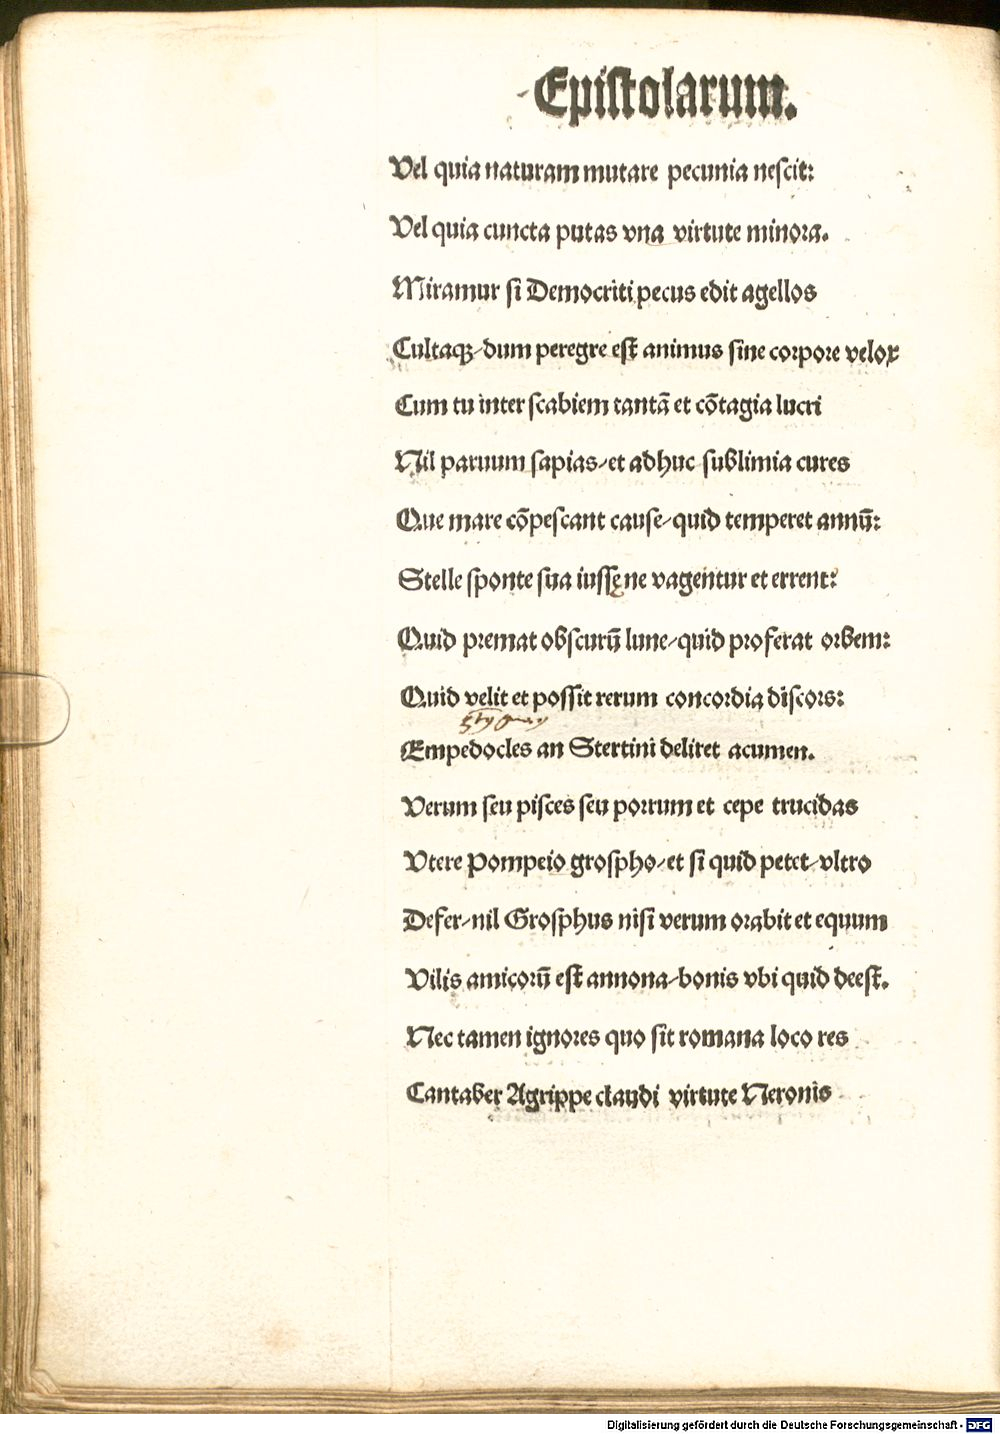 Epistolarum.
Vel quia naturam mutare pecunia nescit:
Vel quia cuncta putas vna virtute minora.
Miramur si Democriti pecus edit agellos
Cultaqꝫ/dum peregre est animus sine corpore velox
Cum tu inter scabiem tantā et cōtagia lucri
Nil paruum sapias/et adhuc sublimia cures
Que mare cōpescant cause/quid temperet annū:
Stelle sponte sua iussę ne vagentur et errent:
Quid premat obscurū lune/quid proferat orbem:
Quid velit et possit rerum concordia discors:
Empedocles an Stertini deliret acumen.
Verum seu pisces seu porrum et cepe trucidas
Vtere Pompeio grospho/et si quid petet/vltro
Defer/nil Grosphus nisi verum orabit et equum
Vilis amicorū est annona/bonis vbi quid deest.
Nec tamen ignores quo sit romana loco res
Cantaber Agrippe claudi virtute Neronis
Digitalisierung gefördert durch die Deutsche Forschungsgemeinschaft - DFG